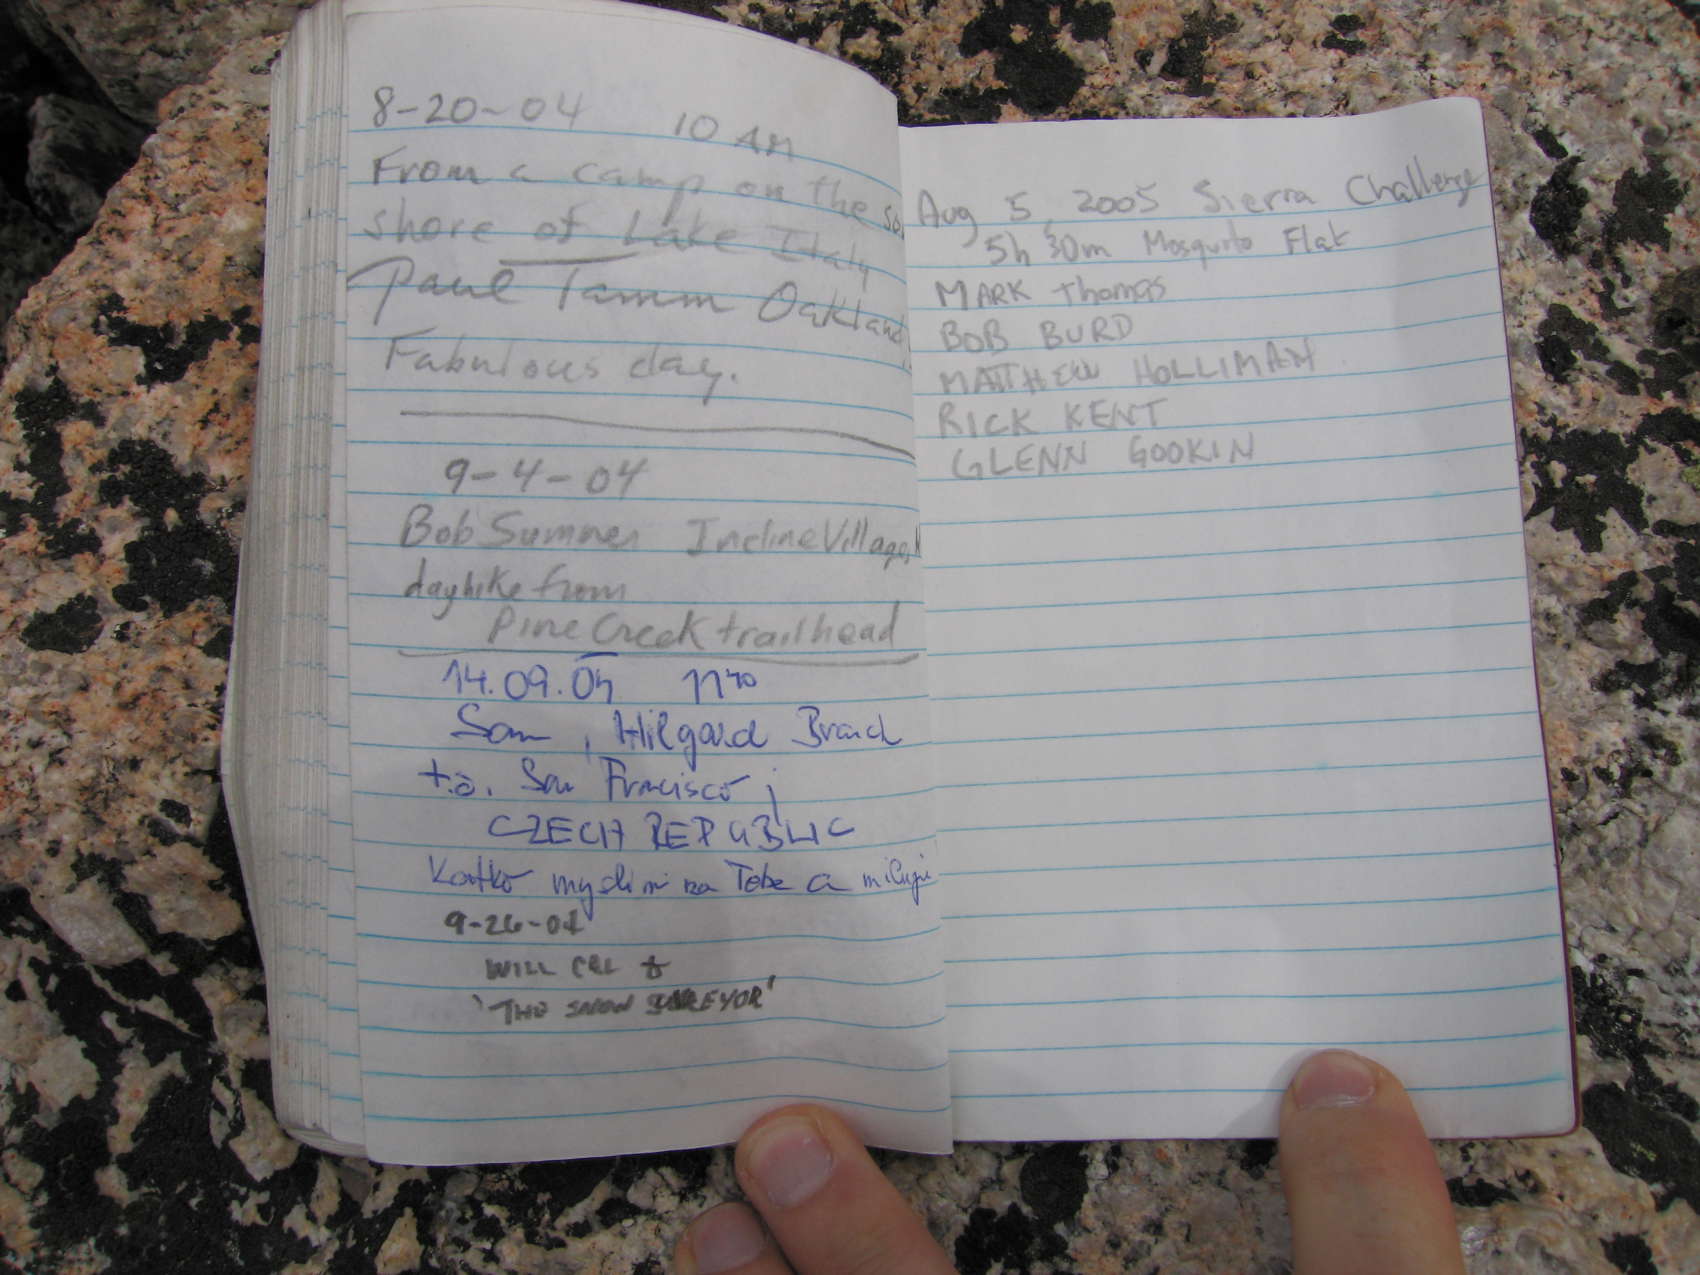 8-20-04 10 AM
From a camp on the so
shore of Lake Italy
Paul Tamm Oakland
Fabulous day.
9-4-04
Bob Sumner Incline Village, N
dayhike from
Pine Creek trailhead
14.09.04 11 40
Sam, Hilgard Branch
t.o. San Francisco;
CZECH REPUBLIC
Katko myslim na Tebe a miluji
9-26-04
WILL &
'THE SNOW SURVEYOR'
Aug 5, 2005 Sierra Challenge
5h 30m Mosquito Flat
MARK Thomas
BOB BURD
MATTHEW HOLLIMAN
RICK KENT
GLENN GOOKIN